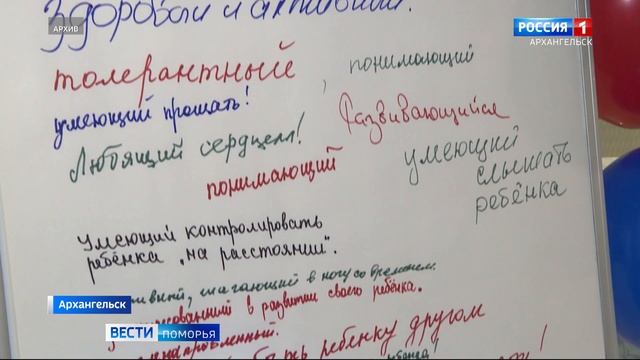 Здоровый и активный!
АРХИВ
РОССИЯ 1
АРХАНГЕЛЬСК
толерантный
, понимающий
умеющий прощать!
Развивающийся
Любящий сердцем!
понимающий
умеющий
слышать
ребёнка
Умеющий контролировать
ребёнка „на расстоянии".
шагающий в ногу со временем.
в развитии своего ребёнка.
ребенку другом
Архангельск
ВЕСТИ ПОМОРЬЯ